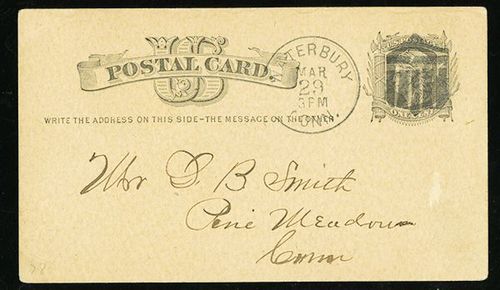 US
POSTAL CARD.
WATERBURY
MAR
29
3PM
CONN.
WRITE THE ADDRESS ON THIS SIDE-THE MESSAGE ON THE OTHER
Mr D B Smith
Pine Meadow
Conn